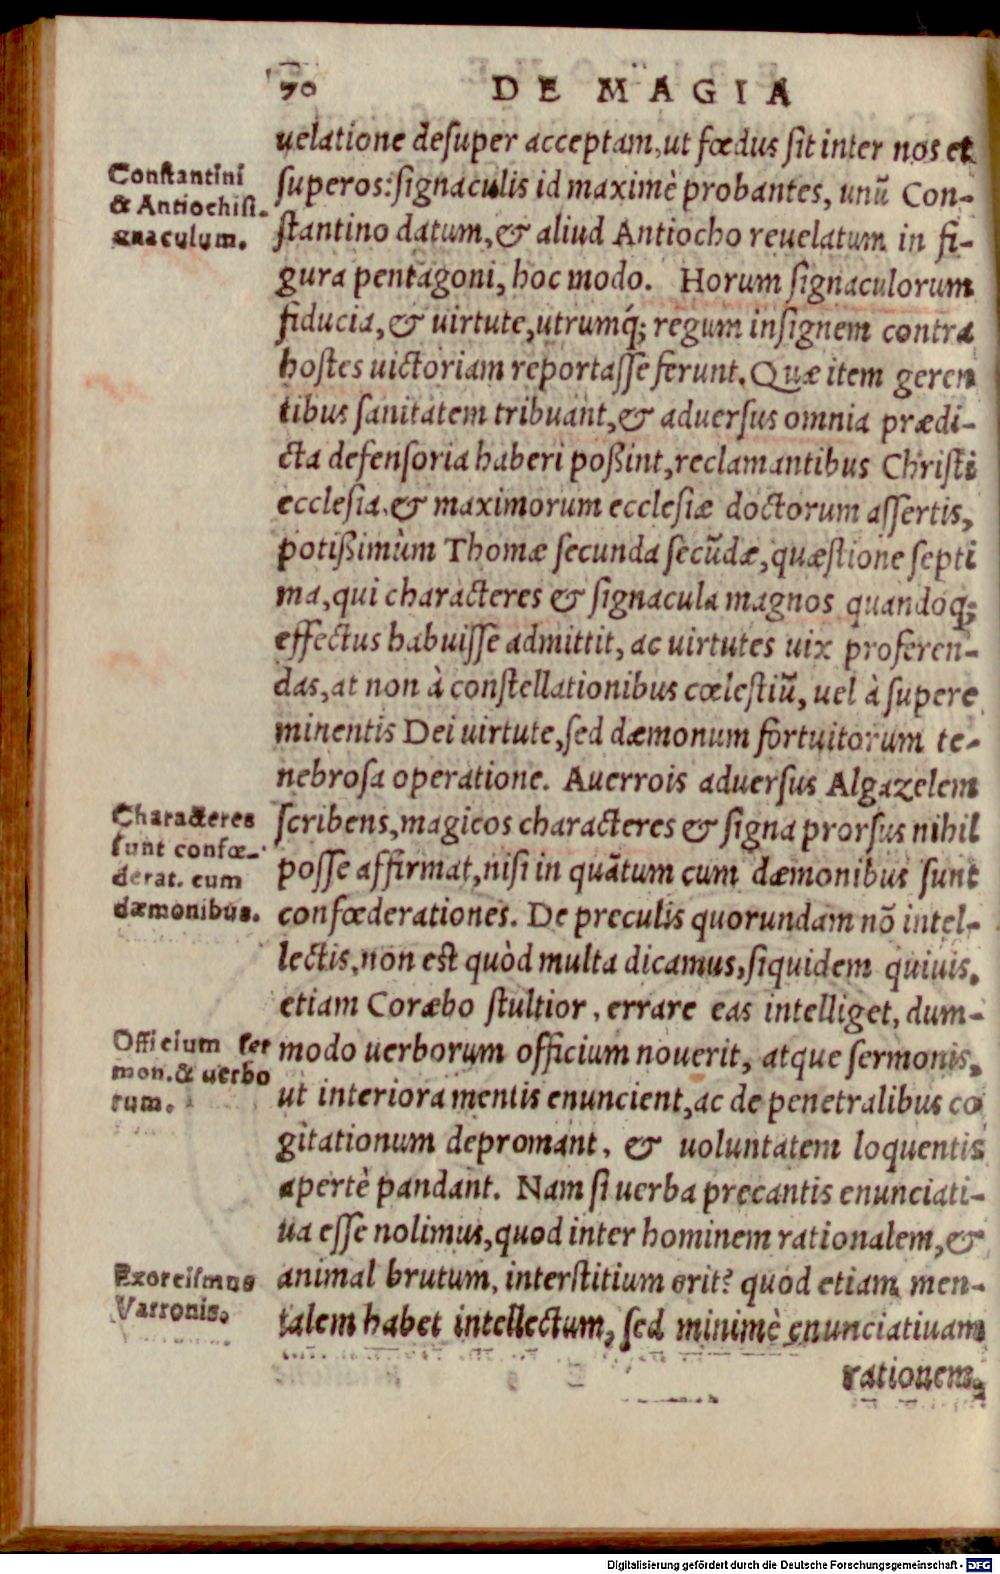 70 DE MAGIA
uelatione desuper acceptam, ut fœdus sit inter nos et
superos: signaculis id maximè probantes, unũ Con-
stantino datum, & aliud Antiocho reuelatum in fi-
gura pentagoni, hoc modo. Horum signaculorum
fiducia, & uirtute, utrumq; regum insignem contra
hostes uictoriam reportasse ferunt. Quæ item geren
tibus sanitatem tribuant, & aduersus omnia prædi-
cta defensoria haberi poßint, reclamantibus Christi
ecclesia, & maximorum ecclesiæ doctorum assertis,
potißimùm Thomæ secunda secũdæ, quæstione septi
ma, qui characteres & signacula magnos quandoq;
effectus habuisse admittit, ac uirtutes uix proferen-
das, at non à constellationibus cœlestiũ, uel à supere
minentis Dei uirtute, sed dæmonum fortuitorum te-
nebrosa operatione. Auerrois aduersus Algazelem
scribens, magicos characteres & signa prorsus nihil
posse affirmat, nisi in quãtum cum dæmonibus sunt
confœderationes. De preculis quorundam nõ intel-
lectis, non est quòd multa dicamus, siquidem quiuis,
etiam Coræbo stultior, errare eas intelliget, dum-
modo uerborum officium nouerit, atque sermonis,
ut interiora mentis enuncient, ac de penetralibus co
gitationum depromant, & uoluntatem loquentis
apertè pandant. Nam si uerba precantis enunciati-
ua esse nolimus, quod inter hominem rationalem, &
animal brutum, interstitium erit? quod etiam men-
talem habet intellectum, sed minimè enunciatiuam
rationem,
Constantini
& Antiochi si-
gnaculum.
Characteres
sunt confœ-
derat. cum
dæmonibus.
Officium ser
mon. & uerbo
rum.
Exorcismus
Varronis.
Digitalisierung gefördert durch die Deutsche Forschungsgemeinschaft - DFG